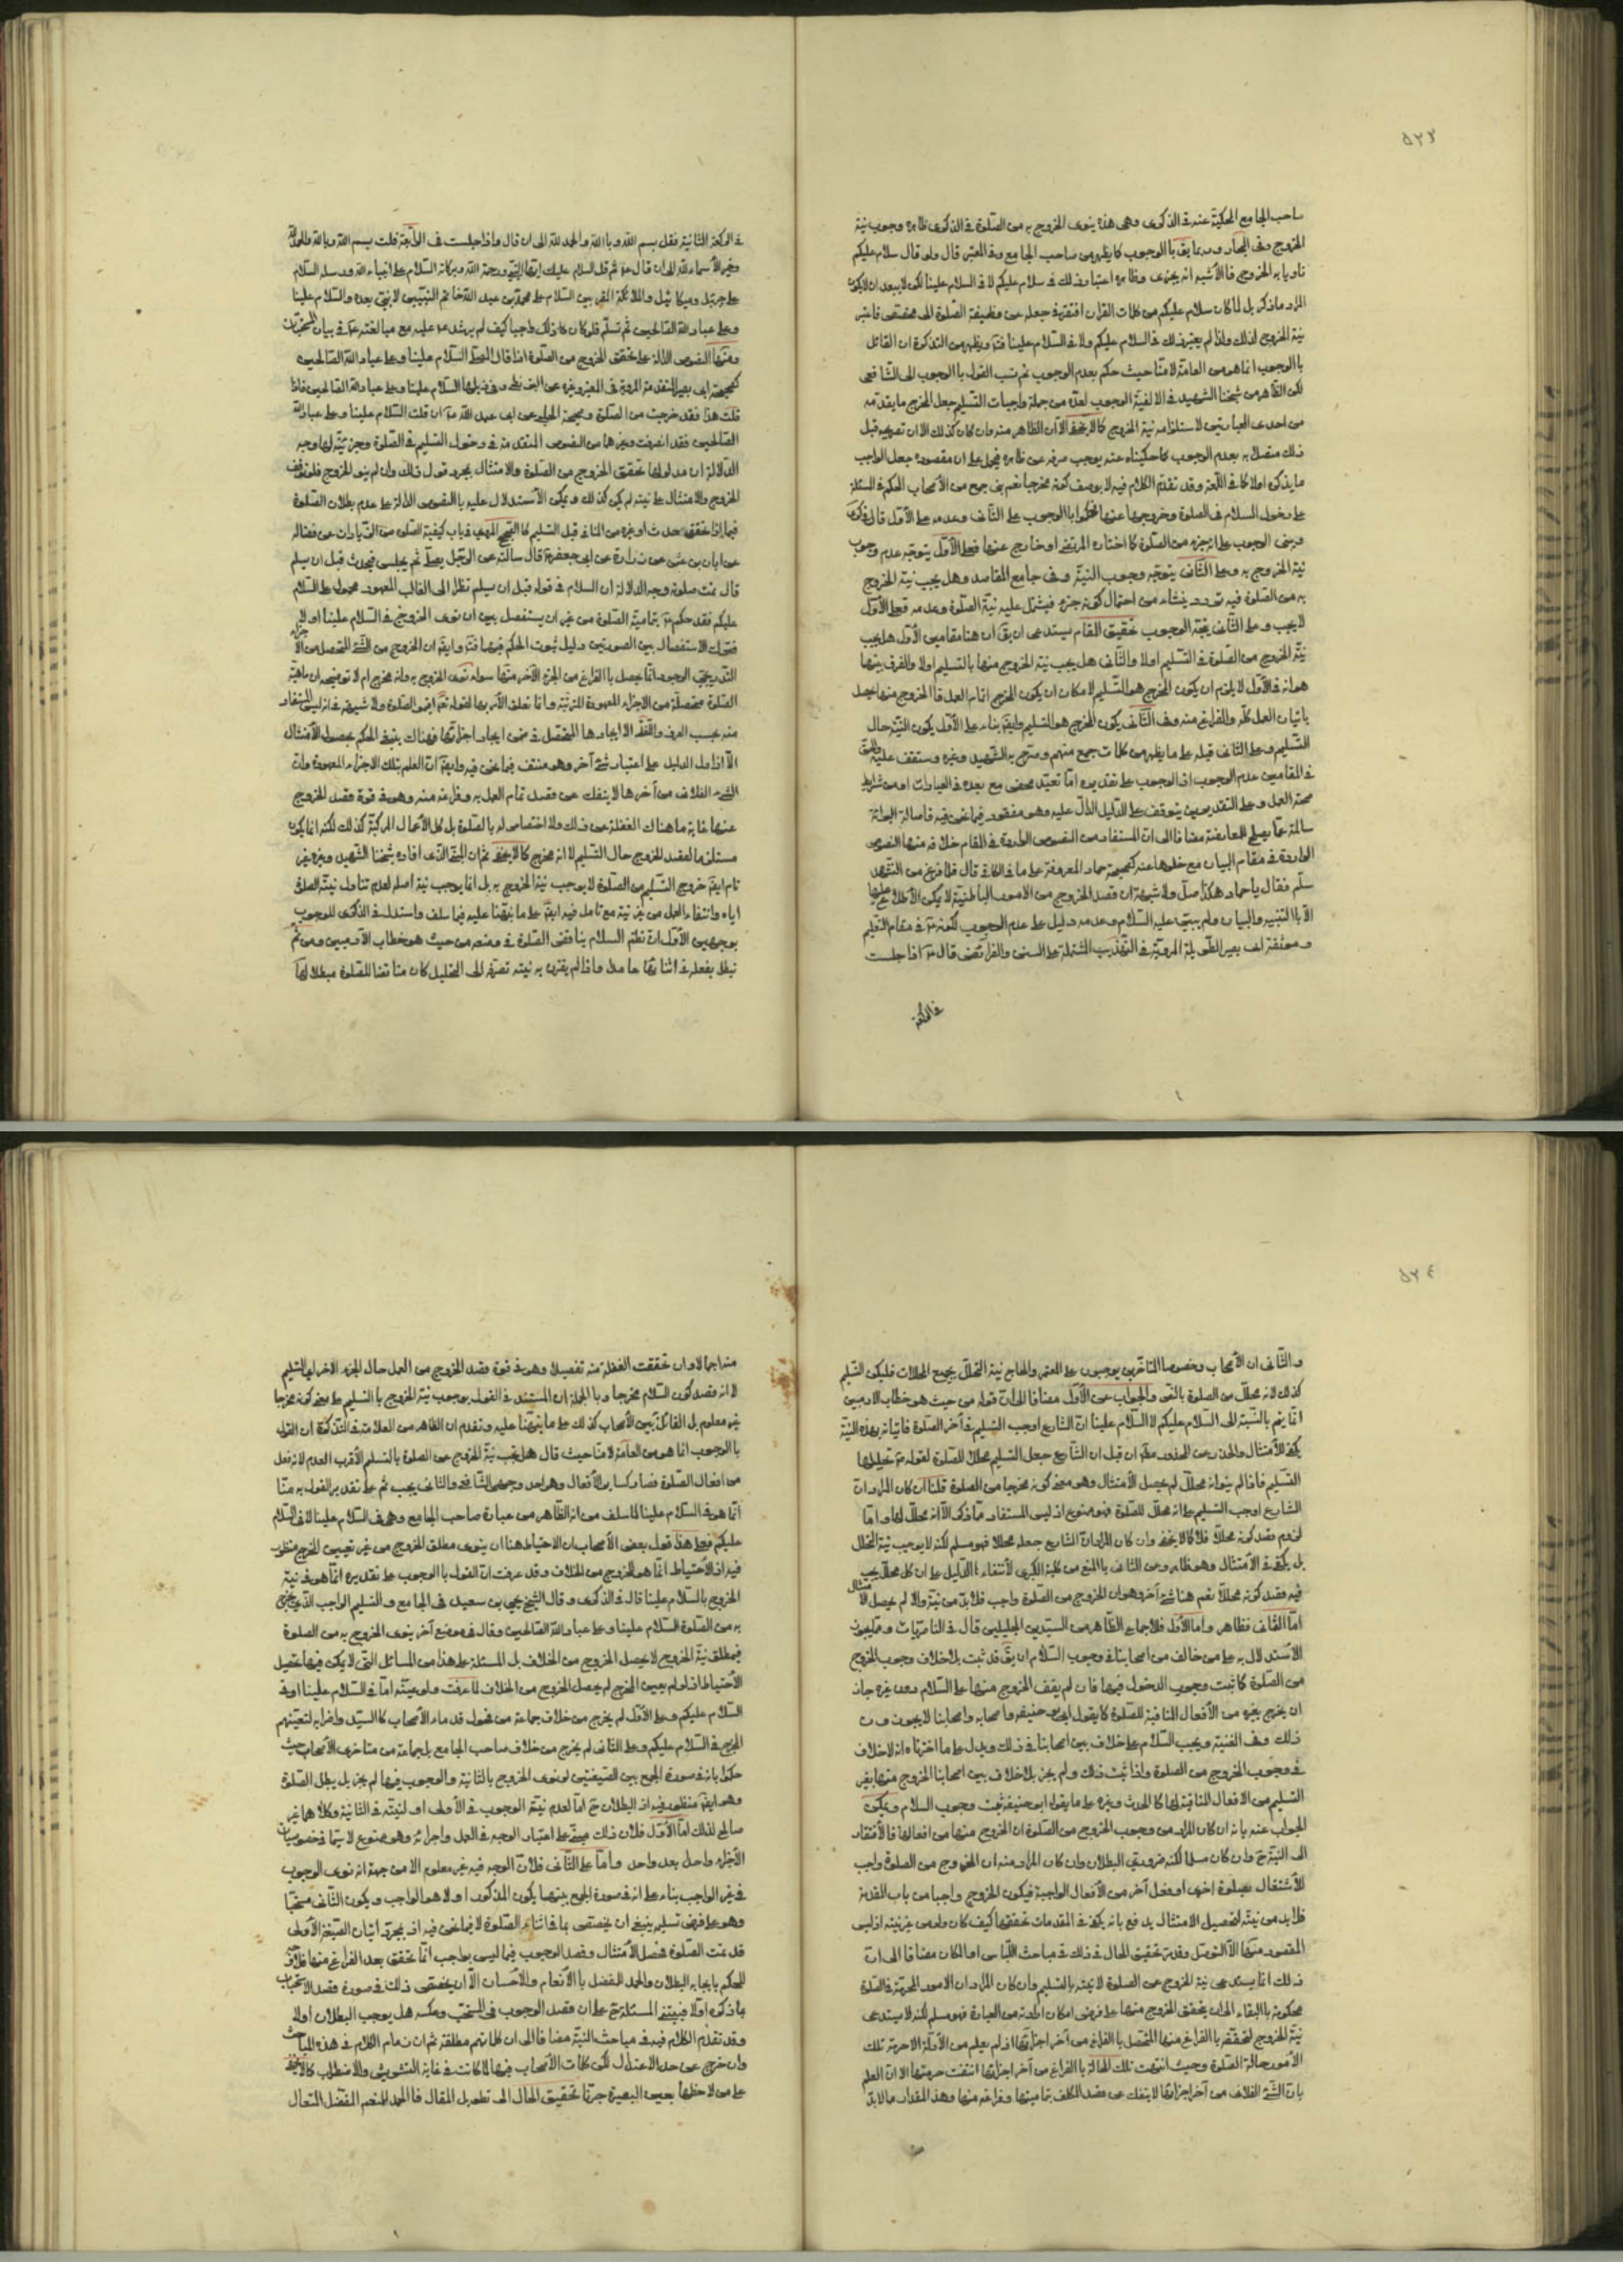 ٥٢٣
صاحب الجامع المحكية عنه في الذكرى وهى هذه ينوى الخروج به من الصلوة في الذكرى ظاهره وجوب نية
الخروج وفى البحار وربما يق بالوجوب كما يظهر من صاحب الجامع وفي المعتبر قال ولو قال سلام عليكم
ناويا به الخروج فالأشبه انه يجزى وظاهره اعتبار ذلك في سلام عليكم لا في السلام علينا لكن لا يبعد ان لا يكون
المراد ما ذكر بل لما كان سلام عليكم من كلمات القران افتقر في جعله من وظيفة الصلوة الى مخصص فاعتبر
نية الخروج لذلك ولذا لم يعتبر ذلك في السلام عليكم ولا في السلام علينا ويظهر من التذكرة ان القائل
بالوجوب انما هو من العامة لا منا حيث حكم بعدم الوجوب ثم نسب القول بالوجوب الى الشافعى
لكن الظاهر من شيخنا الشهيد في الالفية الوجوب لعده من جملة واجبات التسليم جعل المخرج ما يقدمه
من احدى العبارتين لاستلزامه نية الخروج كما لا يخفى الا ان الظاهر منه وان كان كذلك الا ان تصريحه قبل
ذلك متصلا به بعدم الوجوب كما حكيناه عنه يوجب صرفه عن ظاهره فيحمل على ان مقصوده جعل الواجب
ما يذكره اولا كما في اللمعة وقد تقدم الكلام فيه لا بوصف كونه مخرجا نعم بنى جمع من الأصحاب الحكم في المسئلة
على دخول السلام في الصلوة وخروجها عنها فحكموا بالوجوب على الثانى وعدمه على الأول قال في الذكرى
ويبنى الوجوب على انه جزء من الصلوة كما اختاره المرتضى او خارج عنها فعلى الأول يتوجه عدم وجوب
نية الخروج به وعلى الثانى يتوجه وجوب النية وفى جامع المقاصد وهل يجب نية الخروج
به من الصلوة فيه تردد ينشاء من احتمال كونه جزء فيشمل عليه نية الصلوة وعدمه فعلى الأول
لا يجب وعلى الثانى يتجه الوجوب تحقيق المقام يستدعى ان يق ان هنا مقامين الأول هل يجب
نية الخروج من الصلوة في التسليم اولا والثانى هل يجب نية الخروج منها بالتسليم اولا والفرق بينهما
هو انه في الأول لا يلزم ان يكون المخرج هو التسليم لامكان ان يكون المخرج اتمام العمل فالخروج منها يحصل
باتيان العمل كله والفراغ منه وفى الثانى يكون المخرج هو التسليم وايضا بناء على الأول يكون النية حال
التسليم وعلى الثانى قبله على ما يظهر من كلمات جمع منهم وصرح به الشهيد وغيره وستقف عليه والحق
في المقامين عدم الوجوب اذ الوجوب على تقديره اما تعبد محض مع بعده في العبادات او من شرائط
صحة العمل وعلى التقديرين يتوقف على الدليل الدال عليه وهو مفقود فيما نحن فيه فاصالة البرائة
سالمة عما يصلح للمعارضة مضافا الى ان المستفاد من النصوص الواردة في المقام خلافه منها النصوص
الواردة في مقام البيان مع خلوها عنه كصحيحة حماد المعروفة على ما في الكافى قال فلما فرغ من التشهد
سلم فقال يا حماد هكذا صل ولا شبهة ان قصد الخروج من الامور الباطنية لا يمكن الاطلاع عليها
الا بالتنبيه والبيان ولم يبين عليه السلام وعدمه دليل على عدم الوجوب لكونه في مقام التعليم
وموثقة ابى بصير الطويلة المروية في التهذيب المشتملة على السنن والفرائض قال ع اذا جلست
في الركعة
في الركعة الثانية فقل بسم الله وبالله والحمد لله الى ان قال واذا جلست في الرابعة قلت بسم الله وبالله والحمد لله
وخير الأسماء لله الى ان قال ع ثم قل السلام عليك ايها النبى ورحمة الله وبركاته السلام على انبياء الله ورسله السلام
على جبرئيل وميكائيل والملائكة المقربين السلام على محمد بن عبد الله خاتم النبيين لا نبى بعده والسلام علينا
وعلى عباد الله الصالحين ثم تسلم فلو كان ذلك واجبا كيف لم يرشد ع عليه مع مبالغته ع في بيان المستحبات
ومنها النصوص الدالة على تحقق الخروج من الصلوة اذا قال المصلى السلام علينا وعلى عباد الله الصالحين
كصحيحة ابى بصير المتقدمة المروية في المعتبر وغيره عن البزنطى وفى ذيلها السلام علينا وعلى عباد الله الصالحين فاذا
قلت هذا فقد خرجت من الصلوة وصحيحة الحلبى عن ابى عبد الله ع ان قلت السلام علينا وعلى عباد الله
الصالحين فقد انصرفت وغيرها من النصوص المتقدمة في دخول التسليم في الصلوة وجزئيته لها وجه
الدلالة ان مدلولها تحقق الخروج من الصلوة والامتثال بمجرد قول ذلك وان لم ينو الخروج فلو توقف
الخروج والامتثال على نيته لم يكن كذلك ويمكن الاستدلال عليه بالنصوص الدالة على عدم بطلان الصلوة
فيما اذا تحقق حدث او غيره من المنافى قبل التسليم كالصحيح المروى في باب كيفية الصلوة من الزيادات عن فضالة
عن ابان بن عثمن عن زرارة عن ابى جعفر ع قال سألته عن الرجل يصلى ثم يجلس فيحدث قبل ان يسلم
قال تمت صلوته وجه الدلالة ان السلام في قوله قبل ان يسلم نظرا الى الغالب المعهود محمول على السلام
عليكم فقد حكم ع بتمامية الصلوة من غير ان يستفصل بين ان نوى الخروج في السلام علينا او لا
فترك الاستفصال بين الصورتين دليل ثبوت الحكم فيهما وايضا ان الخروج من الشىء المتحصل من الأجزاء
التدريجى الوجود انما يحصل بالفراغ من الجزء الآخر منها سواء نوى الخروج به وانه مخرج ام لا توضيحه ان ماهية
الصلوة متحصلة من الاجزاء المعهودة المترتبة وانما تعلق الأمر بها لقوله تعالى اقيموا الصلوة ولا شبهة في انه ليس المستفاد
منه بحسب العرف واللغة الا ايجادها المتحصل في ضمن ايجاد اجزائها فهناك ينبغى الحكم بحصول الأمتثال
الا اذا دل الدليل على اعتبار شىء آخر وهو منتف فيما نحن فيه وايضا ان العلم بتلك الاجزاء المعهودة وان
الشىء الفلانى من آخرها لا ينفك عن قصد تمام العمل به وفراغه منه وهو في قوة قصد الخروج
عنها غاية ما هناك الغفلة عن ذلك ولا اختصاص له بالصلوة بل كل الأعمال المركبة كذلك لكنه انما يكون
مستلزما لقصد الخروج حال التسليم لا انه مخرج كما لا يخفى ثم ان المبنى الذى افاده شيخنا الشهيد وغيره غير
تام ايضا خروج التسليم من الصلوة لا يوجب نية الخروج به بل انما يوجب نية اصله لعدم تناول نية الصلوة
اياه وانتفاء العمل من غير نية مع تأمل فيه ايضا على ما نبهنا عليه فيما سلف واستدل في الذكرى للوجوب
بوجهين الأول ان نظم السلام يناقض الصلوة في وضعه من حيث هو خطاب الآدميين ومن ثم
تبطل بفعله في اثنائها عامدا واذا لم يقترن به نيته تصرفه الى التحليل كان مناقضا للصلوة مبطلا لها
٥٢٤
والثانى ان الأصحاب وخصوصا المتأخرين يوجبون على المعتمر والحاج نية التحلل بجميع المحللات فليكن التسليم
كذلك لانه محلل من الصلوة بالنص والجواب عن الأول مضافا الى ان قوله من حيث هو خطاب الادميين
انما يتم بالنسبة الى السلام عليكم لا السلام علينا ان الشارع اوجب التسليم في آخر الصلوة فاتيانه بهذه النية
يكفى للأمتثال والحذر عن المحذور فان قيل ان الشارع جعل التسليم محللا للصلوة لقوله ع تحليلها
التسليم فاذا لم ينو انه محلل لم يحصل الأمتثال وهو معنى كونه مخرجا من الصلوة قلنا ان كان المراد ان
الشارع اوجب التسليم على انه محلل للصلوة فهو ممنوع اذ ليس المستفاد مما ذكر الا انه محلل لها واما
لزوم قصد كونه محللا فلا كما لا يخفى وان كان المراد ان الشارع جعله محللا فهو مسلم لكنه لا يوجب نية التحلل
بل يكفى في الأمتثال وهو ظاهر وعن الثانى بالمنع من كلية الكبرى لأنتفاء الدليل على ان كل محلل يجب
فيه قصد كونه محللا نعم هنا شىء آخر وهو ان الخروج من الصلوة واجب فلا بد من نية والا لم يحصل الأمتثال
اما الثانى فظاهر واما الأول فلاجماع الظاهر من السيدين الجليلين قال في الناصريات ومما يجوز
الاستدلال به على من خالف من اصحابنا في وجوب السلام ان يق قد ثبت بلا خلاف وجوب الخروج
من الصلوة كما ثبت وجوب الدخول فيها فان لم يقف الخروج منها على السلام دون غيره جاز
ان يخرج بغيره من الأفعال المنافية للصلوة كما يقول ابو حنيفة واصحابه واصحابنا لا يجوزون
ذلك وفى الغنية ويجب السلام على خلاف بين اصحابنا في ذلك ويدل على ما اخترناه انه لا خلاف
في وجوب الخروج من الصلوة واذا ثبت ذلك ولم يجز بلا خلاف بين اصحابنا الخروج منها بغير
التسليم من الافعال المنافية لها كالحدث وغيره على ما يقوله ابو حنيفة ثبت وجوب السلام ويمكن
الجواب عنه بانه ان كان المراد من وجوب الخروج من الصلوة ان الخروج منها من افعالها فالأفتقار
الى النية ح وان كان مسلما لكنه ضرورى البطلان وان كان المراد منه ان الخروج من الصلوة واجب
للأشتغال بصلوة اخرى او فعل آخر من الأفعال الواجبة فيكون الخروج واجبا من باب المقدمة
فلا بد من نيته لتحصيل الامتثال يدفع بانه يكفى في المقدمات تحققها كيف كان ولو من غير نية اذ ليس
المقصود منها الا التوصل وقد مر تحقيق الحال في ذلك في مباحث اللباس او المكان مضافا الى ان
ذلك انما يستدعى نية الخروج من الصلوة لا نيته بالتسليم وان كان المراد ان الامور المحرمة في الصلوة
محكومة بالبقاء الى ان يتحقق الخروج منها على فرض امكان ارادته من العبارة فهو مسلم لكنه لا يستدعى
نية الخروج لتحققه بالفراغ منها المتحصل بالفراغ من آخر اجزائها اذ لم يعلم من الأدلة الا حرمة تلك
الأمور حالة الصلوة وحيث انتهت تلك الحالة بالفراغ من آخر اجزائها انتفت حرمتها الا ان العلم
بان الشىء الفلانى من آخر اجزائها لا ينفك عن قصد المكلف بتماميتها وفراغه منها وهذا المقدار مما لا بد
منه
منه اجمالا وان تحققت الغفلة منه تفصيلا وهو في قوة قصد الخروج من العمل حال الجزء الاخر اى التسليم
لا انه قصد كون السلام مخرجا وبالجملة ان المستند في القول بوجوب نية الخروج بالتسليم على معنى كونه مخرجا
غير معلوم بل القائل بين الأصحاب كذلك على ما نبهنا عليه وتقدم ان الظاهر من العلامة في التذكرة ان القول
بالوجوب انما هو من العامة لا منا حيث قال هل يجب نية الخروج من الصلوة بالتسليم الأقرب العدم لانه فعل
من افعال الصلوة فصار كسائر الأفعال وهو احد وجهى الشافعى والثانى يجب ثم على تقدير القول به منا
انما هو في السلام علينا لما سلف من انه الظاهر من عبارة صاحب الجامع وهى في السلام علينا لا في السلام
عليكم فعلى هذا قول بعض الأصحاب ان الاحتياط هنا ان ينوى مطلق الخروج من غير تعيين المخرج منظور
فيه اذ الأحتياط انما هو للخروج من الخلاف وقد عرفت ان القول بالوجوب على تقديره انما هو في نية
الخروج بالسلام علينا قال في الذكرى وقال الشيخ يحيى بن سعيد في الجامع والتسليم الواجب الذى يخرج
به من الصلوة السلام علينا وعلى عباد الله الصالحين وقال في موضع آخر ينوى الخروج به من الصلوة
فبمطلق نية الخروج لا يحصل الخروج من الخلاف بل المسئلة على هذا من المسائل التى لا يمكن فيها تحصيل
الأحتياط اذ لو لم يعين المخرج لم يحصل الخروج من الخلاف لما عرفت ولو عينه اما في السلام علينا او في
السلام عليكم وعلى الأول لم يخرج من خلاف جماعة من فحول قدماء الأصحاب كالسيد واضرابه لتعيينهم
المخرج في السلام عليكم وعلى الثانى لم يخرج من خلاف صاحب الجامع بل جماعة من متأخرى الأصحاب حيث
حكموا بانه في صورة الجمع بين الصيغتين لو نوى الخروج بالثانية والوجوب فيها لم يجز بل يبطل الصلوة
وهو ايضا منظور فيه اذ البطلان ح اما لعدم نية الوجوب في الأولى او لنيته في الثانية وكلاهما غير
صالح لذلك اما الأول فلان ذلك مبنى على اعتبار الوجه في العمل واجزائه وهو ممنوع لا سيما في خصوصيات
الأجزاء واحد بعد واحد واما على الثانى فلان الوجه فيه غير معلوم الا من جهة انه نوى الوجوب
في غير الواجب بناء على انه في صورة الجمع بينهما يكون المذكور اولا هو الواجب ويكون الثانى مستحبا
وهو على فرض تسليمه ينبغى ان يختص بما في اثناء الصلوة لا فيما نحن فيه اذ بمجرد اتيان الصيغة الأولى
قد تمت الصلوة فحصل الأمتثال وقصد الوجوب فيما ليس بواجب انما تحقق بعد الفراغ منها فلا وجه
للحكم بايجابه البطلان والحمد للمفضل بالأنعام والأحسان الا ان يختص ذلك في صورة قصد الاستحباب
بما ذكره اولا فيبتنى المسئلة ح على ان قصد الوجوب في المستحب وعكسه هل يوجب البطلان اولا
وقد تقدم الكلام فيه في مباحث النية مضافا الى ان كلماتهم مطلقة ثم ان زمام الكلام في هذه المباحث
وان خرج عن حد الاعتدال لكن كلمات الأصحاب فيها لما كانت في غاية التشويش والاضطراب كما لا يخفى
على من لاحظها بعين البصيرة جرنا تحقيق الحال الى تطويل المقال فالحمد للمنعم المفضل المتعال